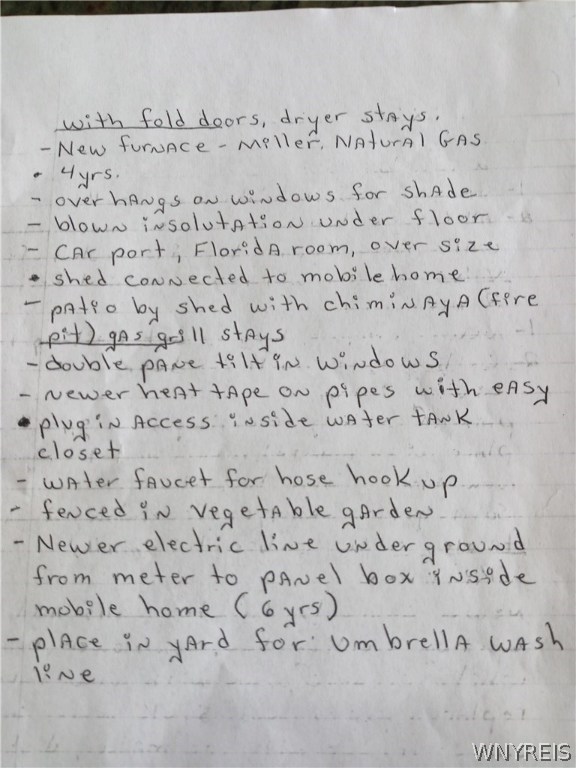 with fold doors, dryer stays.
- New furnace - Miller. Natural Gas
• 4yrs.
- over hangs on windows for shade
- blown insolutation under floor
- Car port, Florida room, over size
• shed connected to mobile home
- patio by shed with chiminaya (fire
pit) gas grill stays
- double pane tilt in windows
- newer heat tape on pipes with easy
• plug in access inside water tank
closet
- water faucet for hose hook up
- fenced in vegetable garden
- Newer electric line underground
from meter to panel box inside
mobile home (6 yrs)
- place in yard for umbrella wash
line
WNYREIS